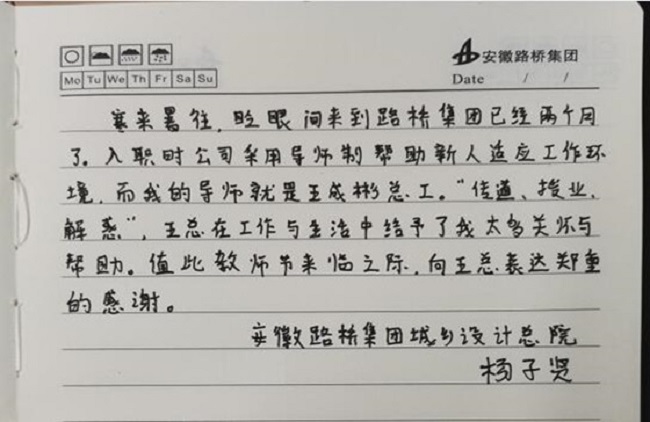 安徽路桥集团
Mo Tu We Th Fr Sa Su
Date / /
寒来暑往，眨眼间来到路桥集团已经两个月
了。入职时公司采用导师制帮助新人适应工作环
境，而我的导师就是王成彬总工。“传道、授业、
解惑”，王总在工作与生活中给予了我太多关怀与
帮助。值此教师节来临之际，向王总表达郑重
的感谢。
安徽路桥集团城乡设计总院
杨子贤